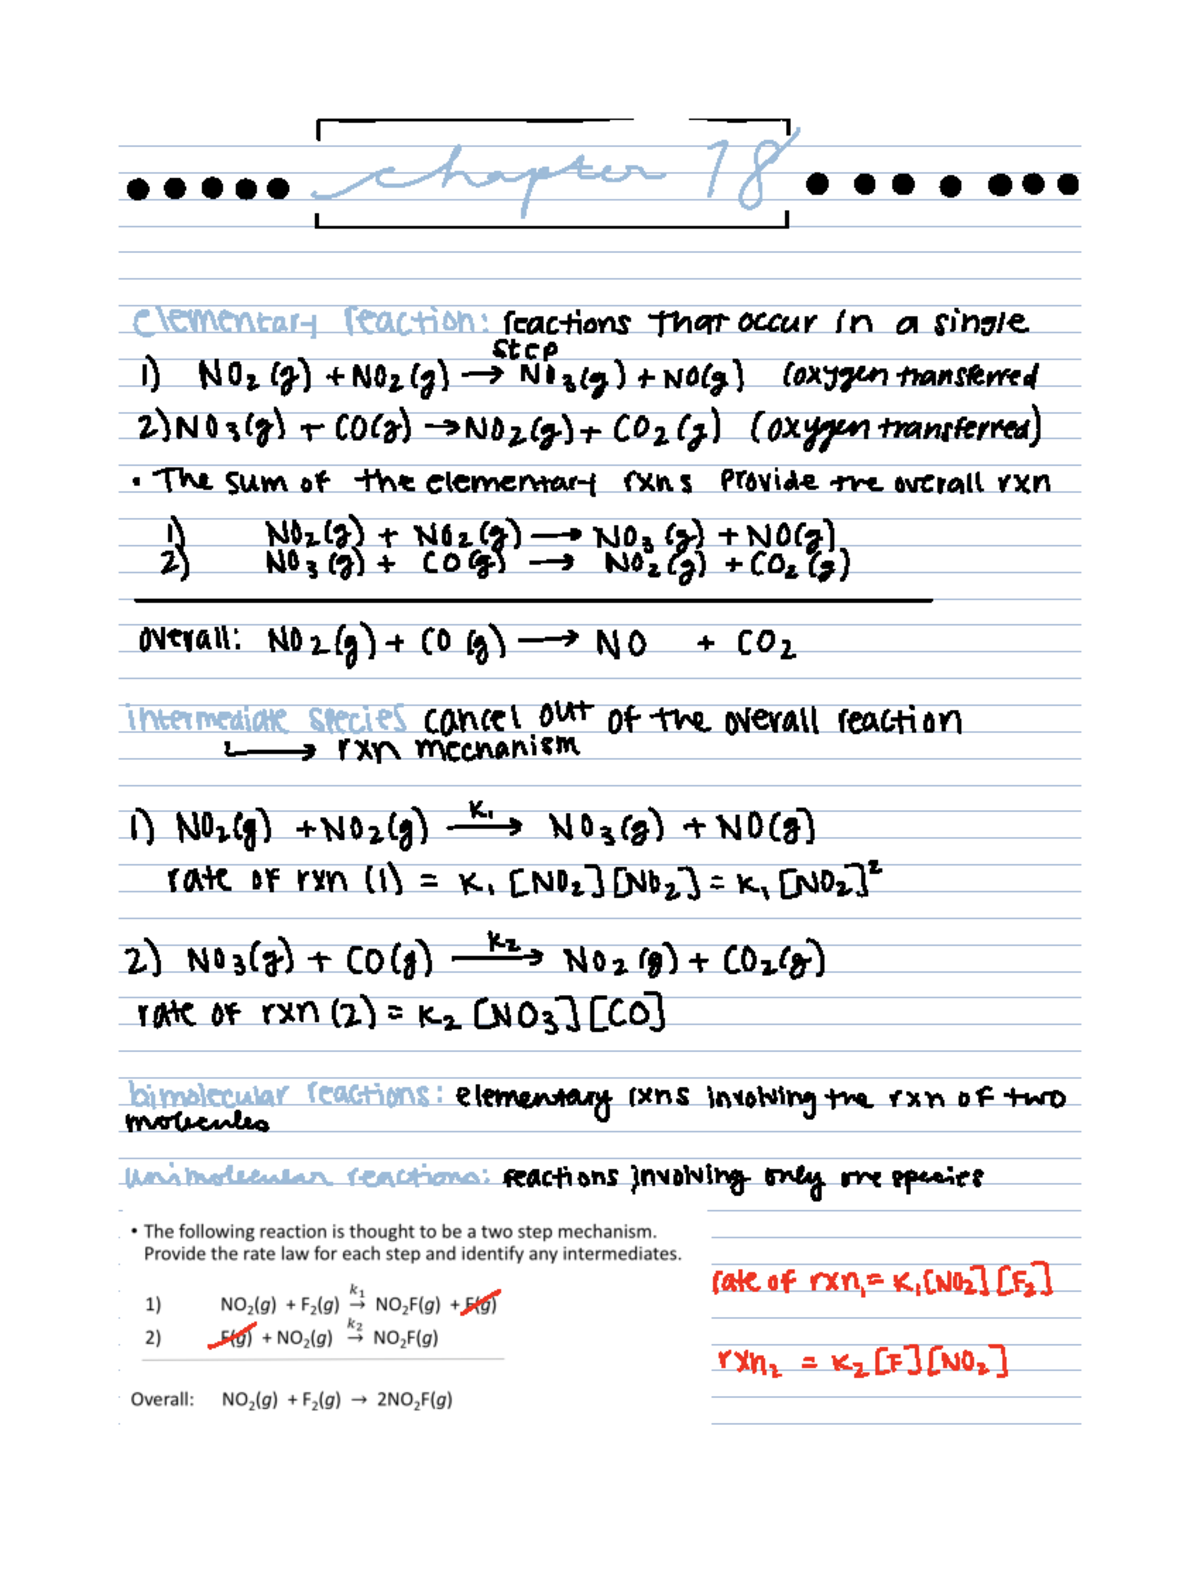 chapter 18
elementary reaction: reactions that occur in a single
step
1) NO₂(g) + NO₂(g) → NO₃(g) + NO(g) (oxygen transferred
2) NO₃(g) + CO(g) → NO₂(g) + CO₂(g) (oxygen transferred)
• The sum of the elementary rxns provide the overall rxn
1) NO₂(g) + NO₂(g) → NO₃(g) + NO(g)
2) NO₃(g) + CO(g) → NO₂(g) + CO₂(g)
overall: NO₂(g) + CO(g) → NO + CO₂
intermediate species cancel out of the overall reaction
→ rxn mechanism
1) NO₂(g) + NO₂(g) k₁→ NO₃(g) + NO(g)
rate of rxn (1) = k₁ [NO₂][NO₂] = k₁ [NO₂]²
2) NO₃(g) + CO(g) k₂→ NO₂(g) + CO₂(g)
rate of rxn (2) = k₂ [NO₃][CO]
bimolecular reactions: elementary rxns involving the rxn of two
molecules
unimolecular reactions: reactions involving only one species
• The following reaction is thought to be a two step mechanism.
Provide the rate law for each step and identify any intermediates.
1) NO₂(g) + F₂(g) k₁→ NO₂F(g) + F(g)
2) F(g) + NO₂(g) k₂→ NO₂F(g)
Overall: NO₂(g) + F₂(g) → 2NO₂F(g)
rate of rxn₁ = k₁[NO₂][F₂]
rxn₂ = k₂[F][NO₂]